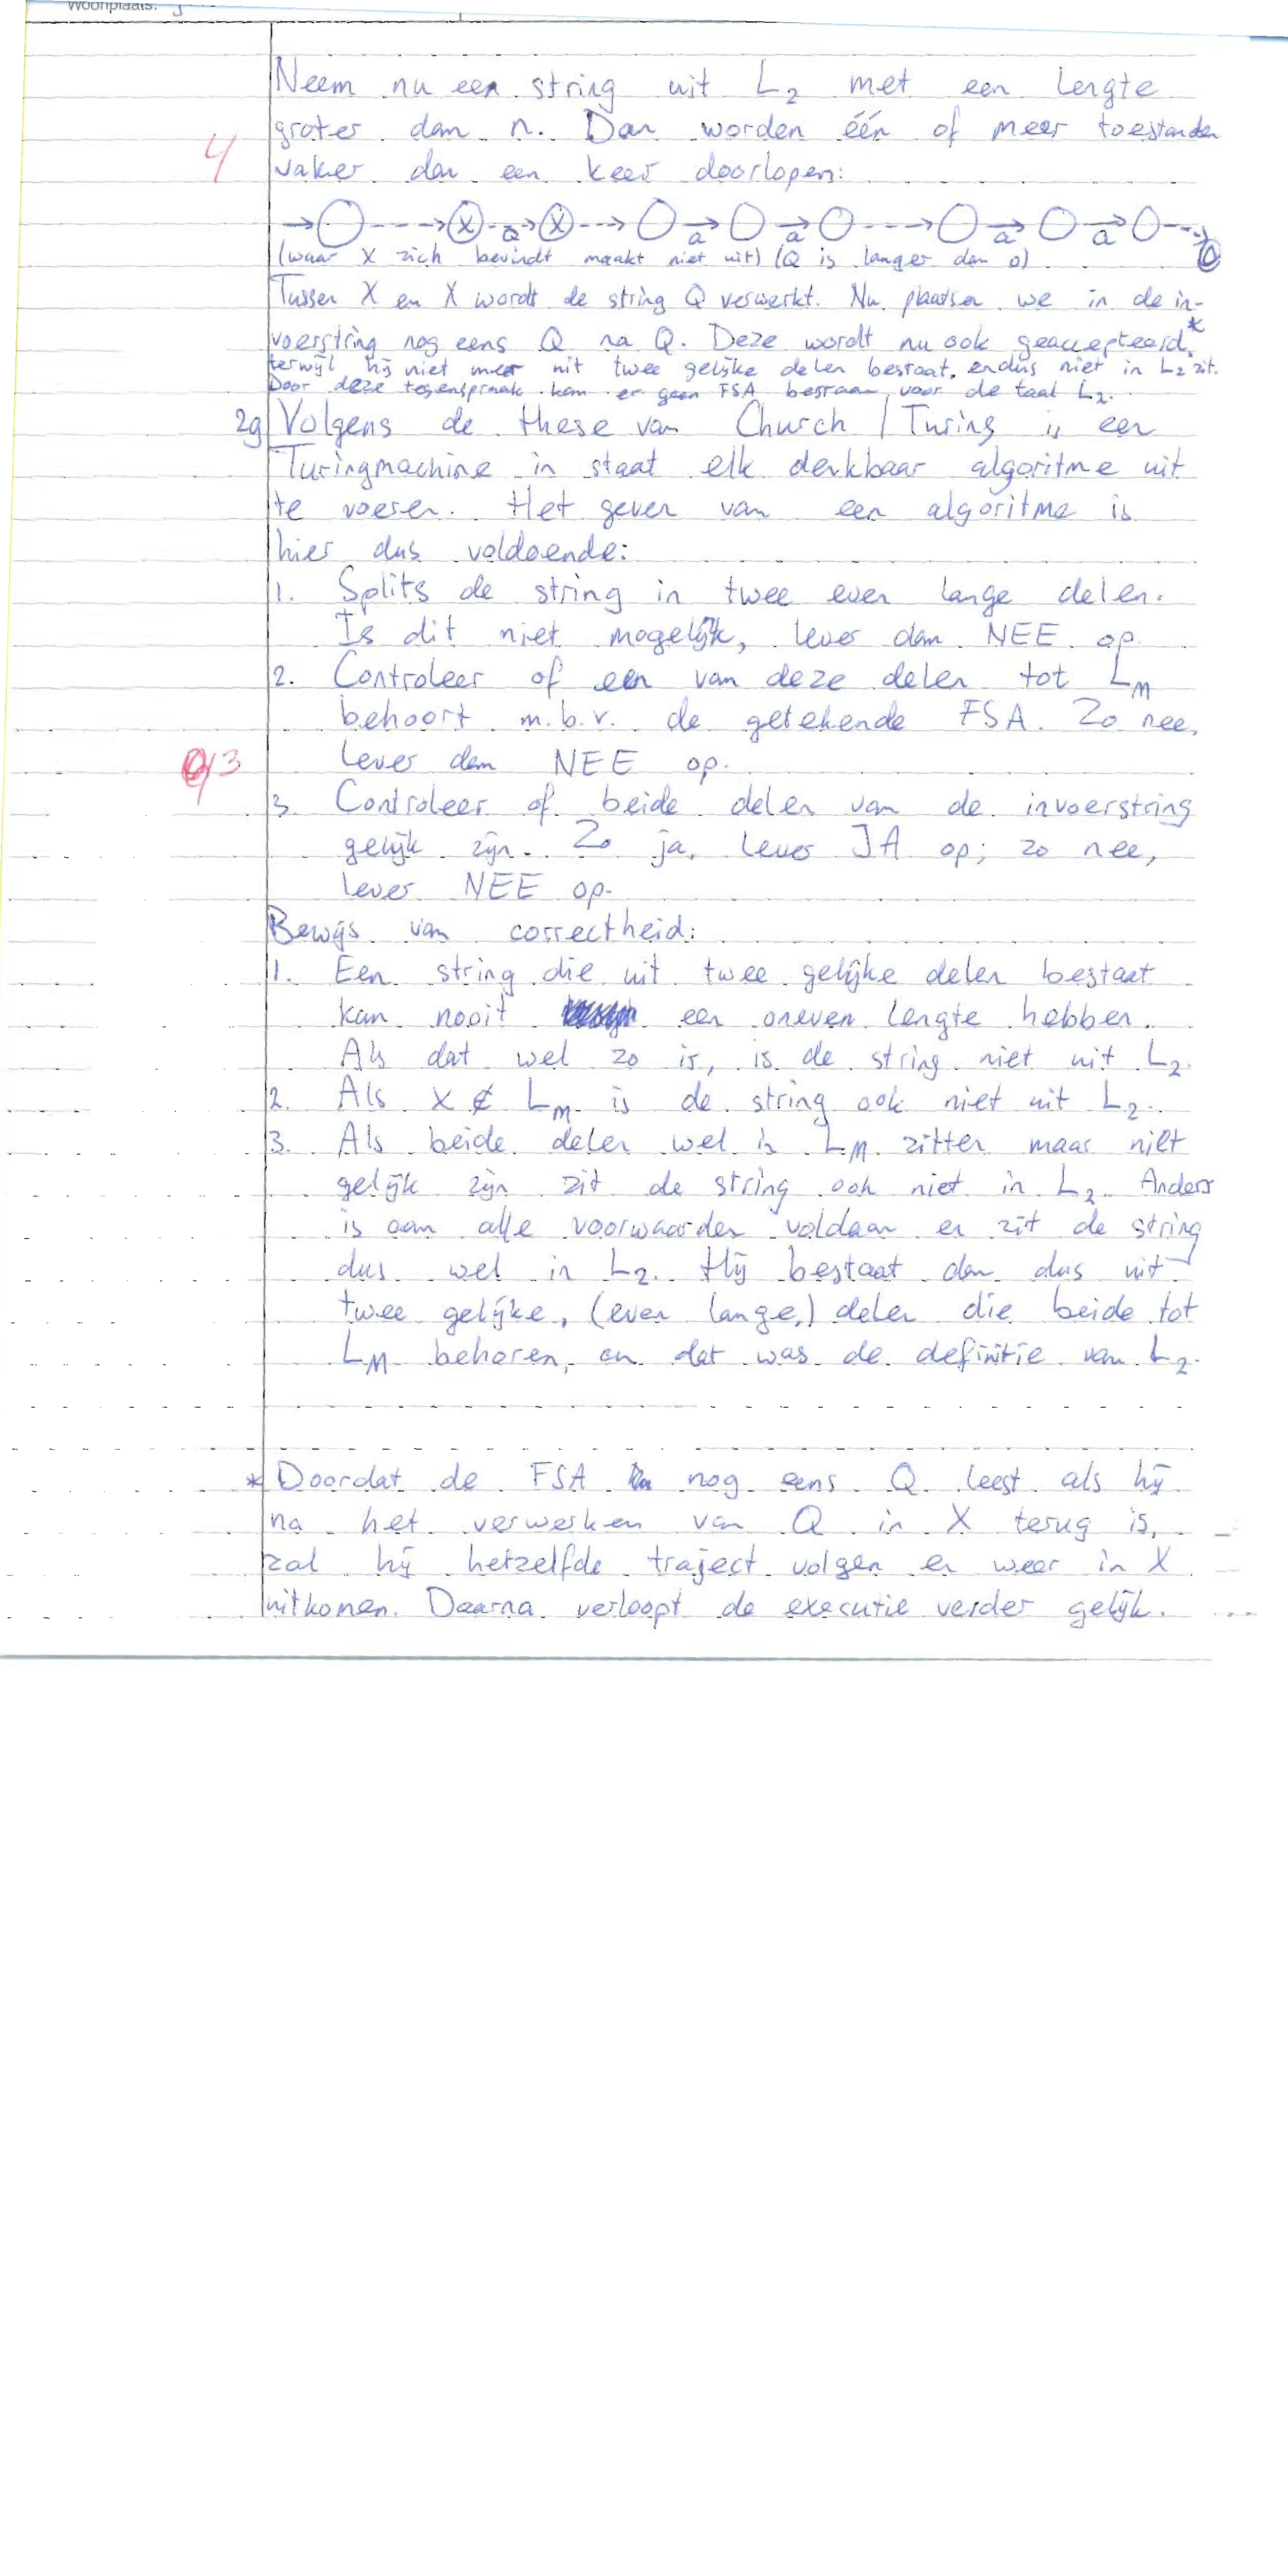 Woonplaats:
Neem nu een string uit L2 met een lengte
groter dan n. Dan worden één of meer toestanden
4
vaker dan een keer doorlopen:
→ ○ ---→ X -Q-→ X ---→ ○ →a ○ →a ○ ---→ ○ →a ○ →a ○ ---→ ○
(waar X zich bevindt maakt niet uit) (Q is langer dan 0)
Tussen X en X wordt de string Q verwerkt. Nu plaatsen we in de in-
voerstring nog eens Q na Q. Deze wordt nu ook geaccepteerd,*
terwijl hij niet meer uit twee gelijke delen bestaat, en dus niet in L2 zit.
Door deze tegenspraak kan er geen FSA bestaan voor de taal L2.
2g Volgens de these van Church / Turing is een
Turingmachine in staat elk denkbaar algoritme uit
te voeren. Het geven van een algoritme is
hier dus voldoende:
1. Splits de string in twee even lange delen.
Is dit niet mogelijk, lever dan NEE op.
2. Controleer of een van deze delen tot LM
behoort m.b.v. de getekende FSA. Zo nee,
3
lever dan NEE op.
3. Controleer of beide delen van de invoerstring
gelijk zijn. Zo ja, lever JA op; zo nee,
lever NEE op.
Bewijs van correctheid:
1. Een string die uit twee gelijke delen bestaat
kan nooit een oneven lengte hebben.
Als dat wel zo is, is de string niet uit L2.
2. Als x ∉ LM is de string ook niet uit L2.
3. Als beide delen wel in LM zitten maar niet
gelijk zijn zit de string ook niet in L2. Anders
is aan alle voorwaarden voldaan en zit de string
dus wel in L2. Hij bestaat dan dus uit
twee gelijke, (even lange,) delen die beide tot
LM behoren, en dat was de definitie van L2.
* Doordat de FSA nog eens Q leest als hij
na het verwerken van Q in X terug is,
zal hij hetzelfde traject volgen en weer in X
uitkomen. Daarna verloopt de executie verder gelijk.